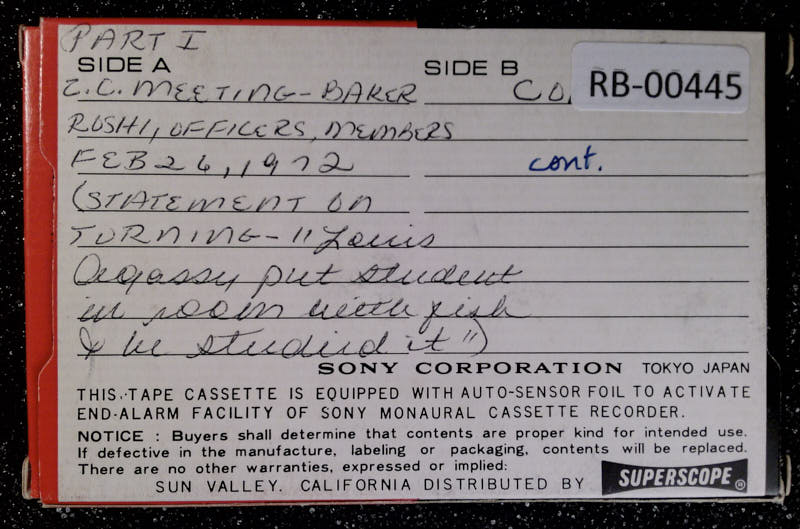 PART I
SIDE A SIDE B
Z.C. MEETING-BAKER CO RB-00445
ROSHI, OFFICERS, MEMBERS
FEB 26, 1972 cont.
(STATEMENT ON
TURNING-"Louis
Agassy put student
in room with fish
& he studied it")
SONY CORPORATION TOKYO JAPAN
THIS TAPE CASSETTE IS EQUIPPED WITH AUTO-SENSOR FOIL TO ACTIVATE
END-ALARM FACILITY OF SONY MONAURAL CASSETTE RECORDER.
NOTICE : Buyers shall determine that contents are proper kind for intended use.
If defective in the manufacture, labeling or packaging, contents will be replaced.
There are no other warranties, expressed or implied:
SUN VALLEY. CALIFORNIA DISTRIBUTED BY SUPERSCOPE®